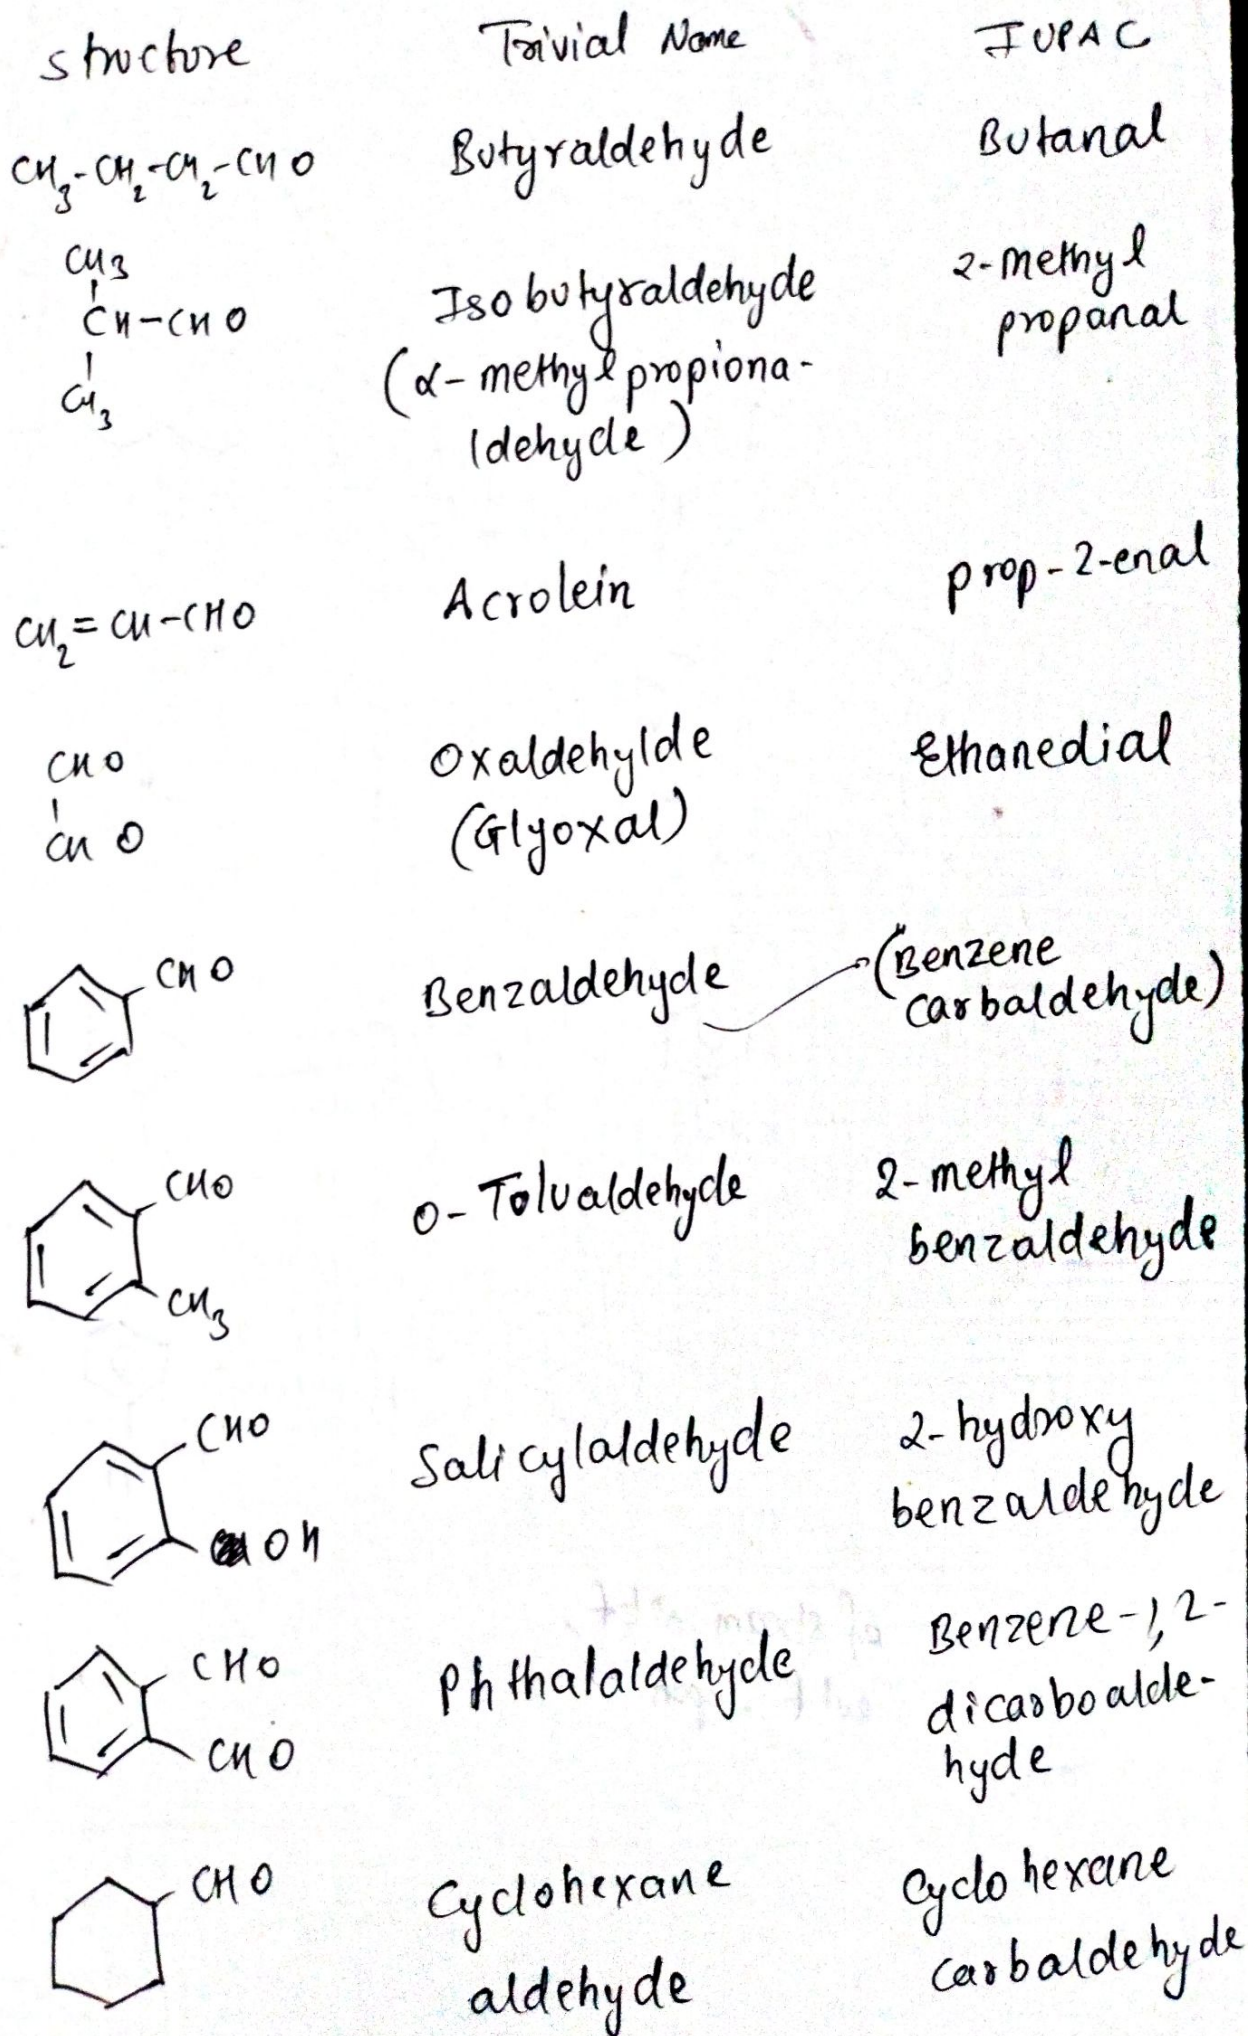 structure Trivial Name IUPAC
CH3-CH2-CH2-CHO Butyraldehyde Butanal
CH3
CH-CHO
CH3
Isobutyraldehyde
(α- methylpropiona-
ldehyde)
2-methyl
propanal
CH2=CH-CHO Acrolein prop-2-enal
CHO
CHO
Oxaldehylde
(Glyoxal)
Ethanedial
CHO
Benzaldehyde
(Benzene
carbaldehyde)
CHO
CH3
o-Tolualdehyde
2-methyl
benzaldehyde
CHO
OH
Salicylaldehyde
2-hydroxy
benzaldehyde
CHO
CHO
Phthalaldehyde
Benzene-1,2-
dicarboalde-
hyde
CHO
Cyclohexane
aldehyde
Cyclohexane
carbaldehyde